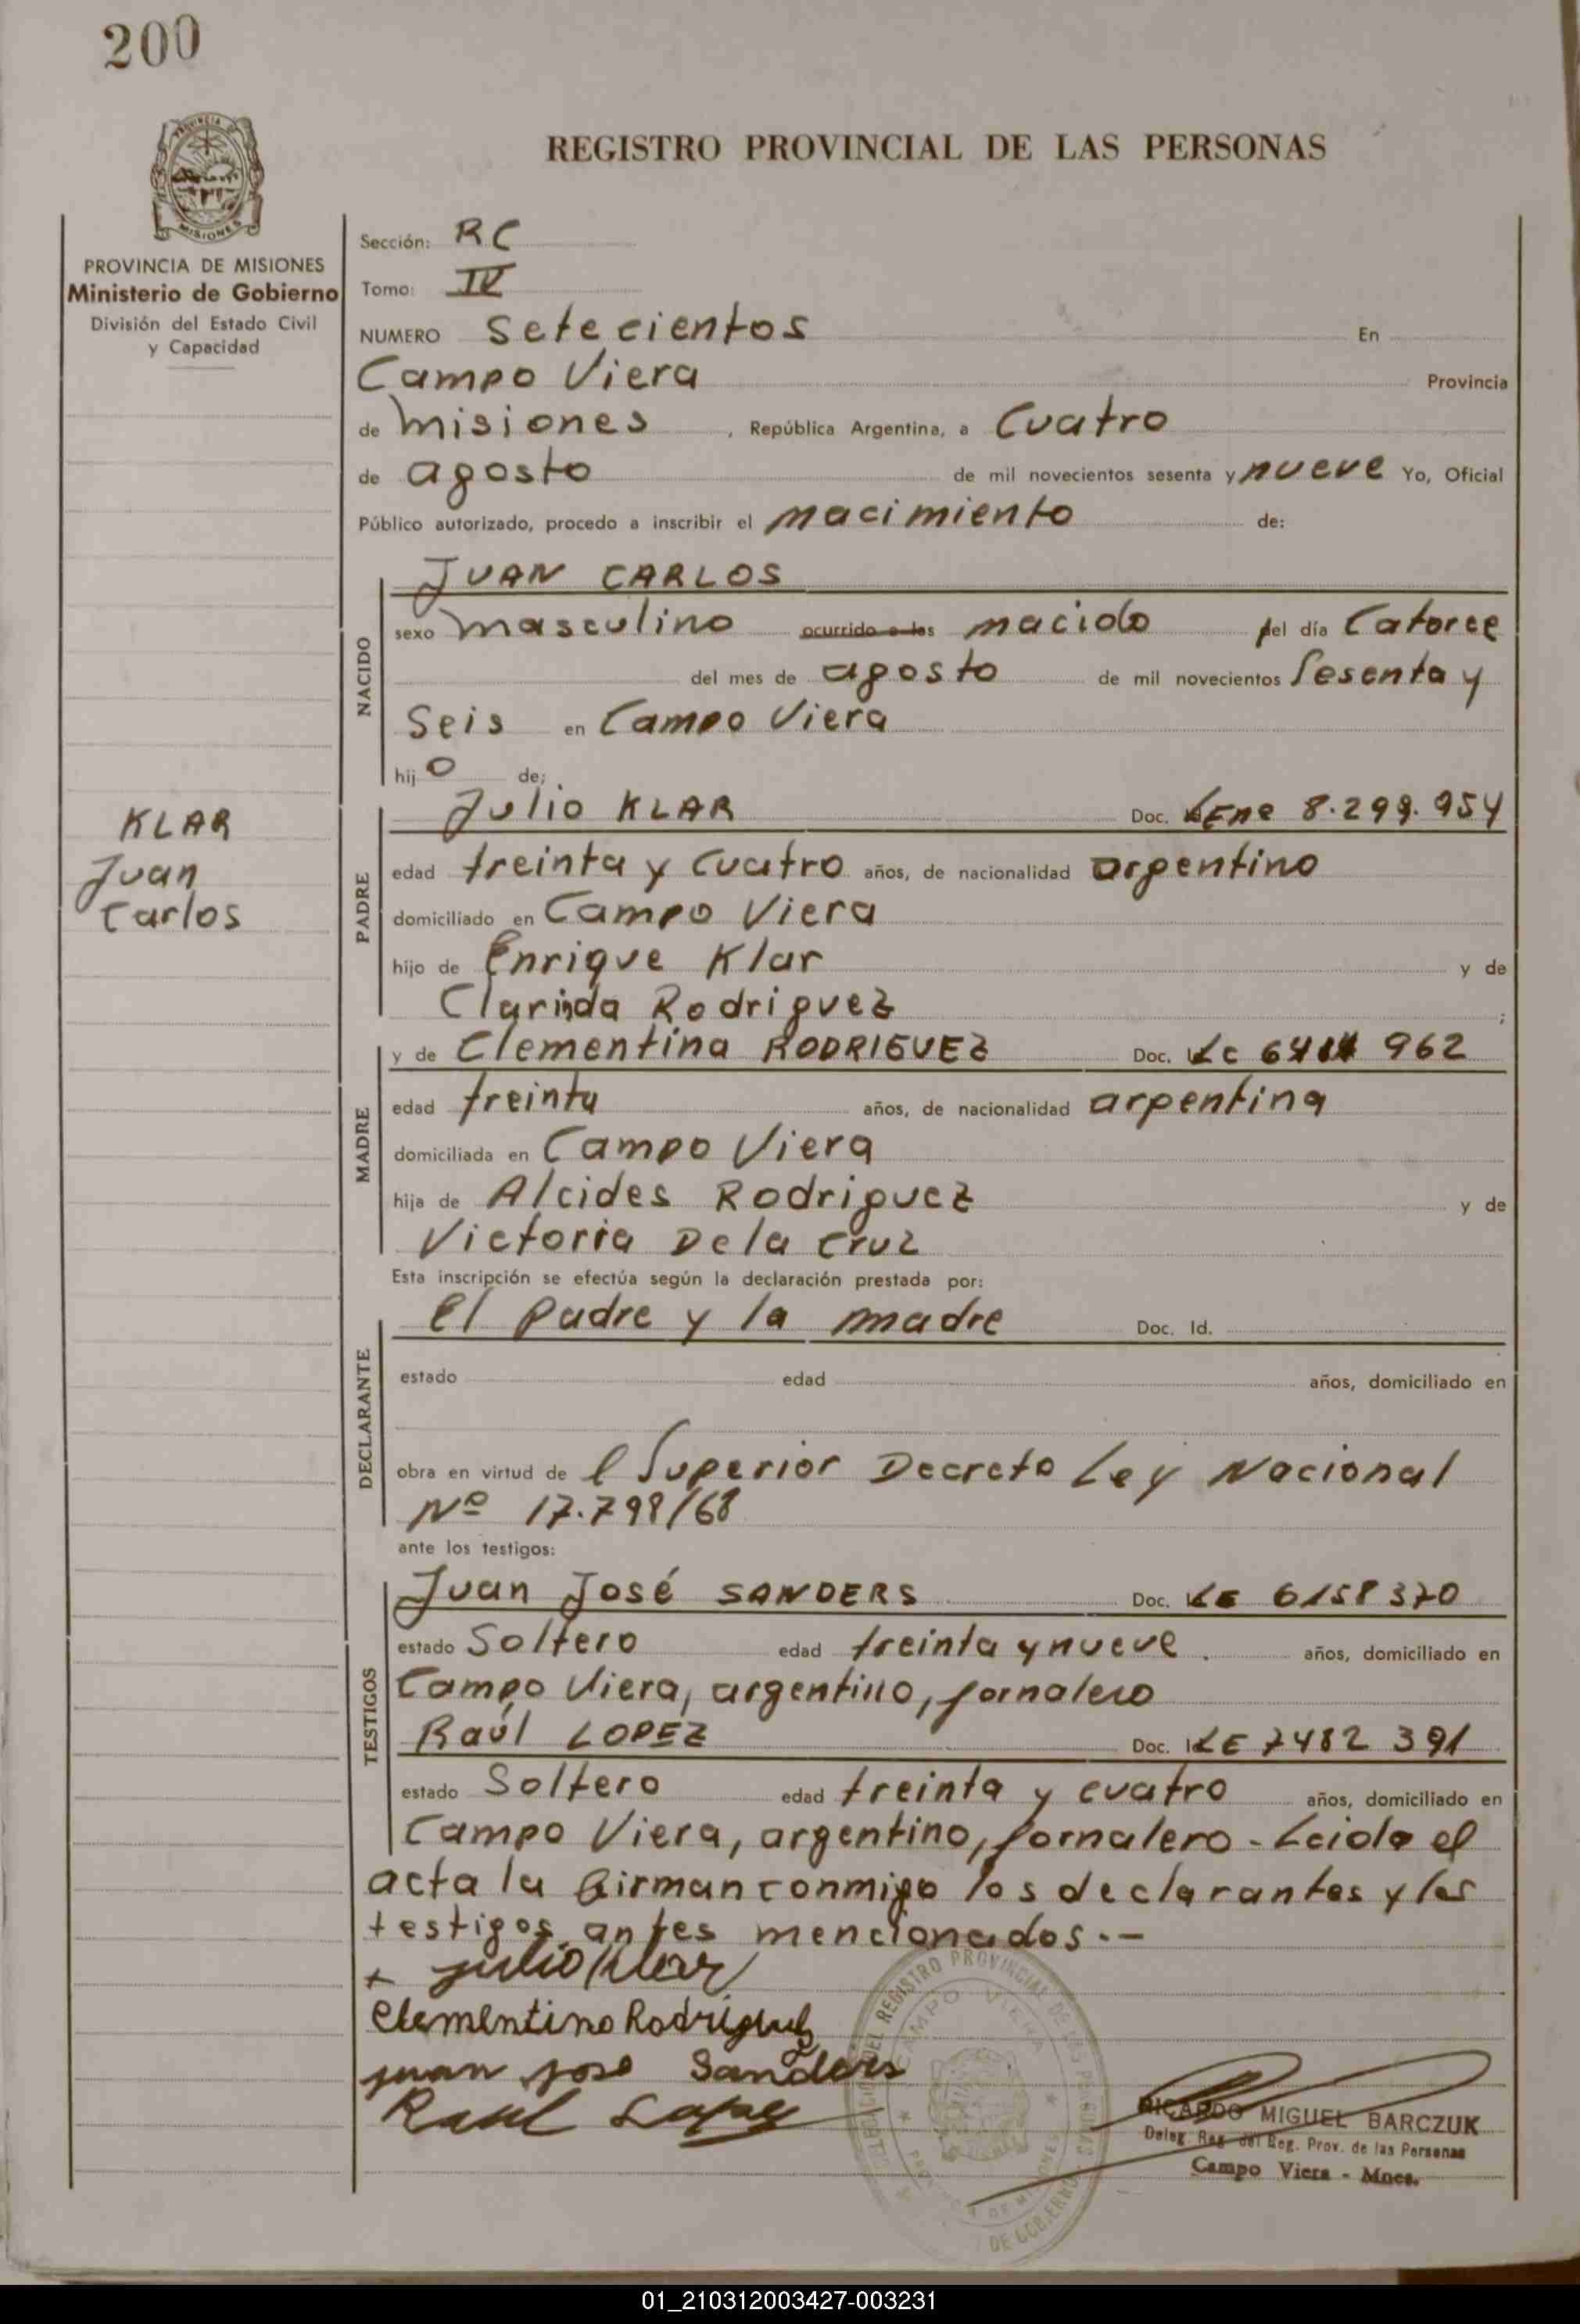 200
PROVINCIA DE MISIONES
Ministerio de Gobierno
División del Estado Civil
y Capacidad
KLAR
Juan
Carlos
REGISTRO PROVINCIAL DE LAS PERSONAS
Sección: RC
Tomo: IV
NUMERO Setecientos En
Campo Viera Provincia
de Misiones, República Argentina, a Cuatro
de agosto de mil novecientos sesenta y nueve Yo, Oficial
Público autorizado, procedo a inscribir el nacimiento de:
NACIDO
JUAN CARLOS
sexo masculino ocurrido a las nacido del día Catorce
del mes de agosto de mil novecientos Sesenta y
Seis en Campo Viera
hijo de:
PADRE
Julio KLAR Doc. 8.299.954
edad treinta y cuatro años, de nacionalidad argentino
domiciliado en Campo Viera
hijo de Enrique Klar y de
Clarinda Rodriguez;
MADRE
y de Clementina RODRIGUEZ Doc. LC 962
edad treinta años, de nacionalidad argentina
domiciliada en Campo Viera
hija de Alcides Rodriguez y de
Victoria De la Cruz
Esta inscripción se efectúa según la declaración prestada por:
DECLARANTE
El padre y la madre Doc. Id.
estado edad años, domiciliado en
obra en virtud de l Superior Decreto Ley Nacional
Nº 17.798/68
ante los testigos:
TESTIGOS
Juan José SANDERS Doc. LE 6158370
estado Soltero edad treinta y nueve. años, domiciliado en
Campo Viera, argentino, jornalero
Raúl LOPEZ Doc. LE 7482 391
estado Soltero edad treinta y cuatro años, domiciliado en
Campo Viera, argentino, jornalero - Leida el
acta la firman conmigo los declarantes y los
testigos antes mencionados.-
+ Julio Klar
Clementina Rodriguez
Juan Jose Sanders
Raul Lopez
DEL REGISTRO PROVINCIAL DE LAS PERSONAS
CAMPO VIERA
PROVINCIA DE MISIONES
DE GOBIERNO
RICARDO MIGUEL BARCZUK
Deleg. Reg. del Reg. Prov. de las Personas
Campo Viera - Mnes.
01_210312003427-003231